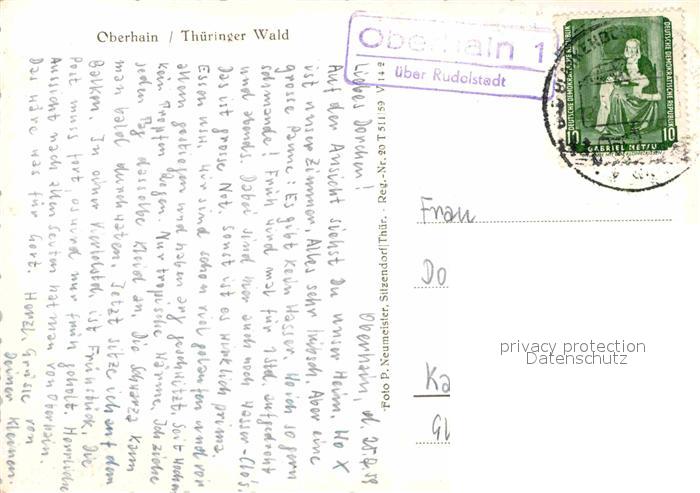 Oberhain / Thüringer Wald
Oberhain 1
über Rudolstadt
DEUTSCHE DEMOKRATISCHE REPUBLIK
DEUTSCHE DEMOKRATISCHE REPUBLIK
10
10
GABRIEL METSU
Oberhain, d. 25.7.59
Liebes Dorchen!
Auf der Ansicht siehst Du unser Heim, wo X
ist unser Zimmer. Alles sehr hübsch. Aber eine
grosse Panne: Es gibt kein Wasser. Wo ich so gern
Früh wird mal für 1 Std. aufgedreht
und abends. Dabei sind hier auch noch Wasser-Clo's.
Das ist grosse Not. Sonst ist es wirklich prima.
Essen usw. Wir sind schon viel gelaufen und
allem gestiegen und haben arg geschwitzt. Seit Wochen
kein Tropfen Regen. Nur tropische Wärme. Ich ziehe
jeden Tag dasselbe Kleid an. Die Schwarza kann
man halb durchwaten. Jetzt sitze ich auf dem
Balkon. In einer Viertelstd. ist Frühstück, die
Post muss fort, es wird nur früh geholt. Herrliche
Aussicht nach allen Seiten hat man von Oberhain.
Das wäre was für Gert. Herzl. Grüsse von
Deiner Kleinen.
Foto P. Neumeister, Sitzendorf/Thür. · Reg.-Nr. 20 T 511/59 V 14 2
Frau
Do
Ka
Gl
privacy protection
Datenschutz